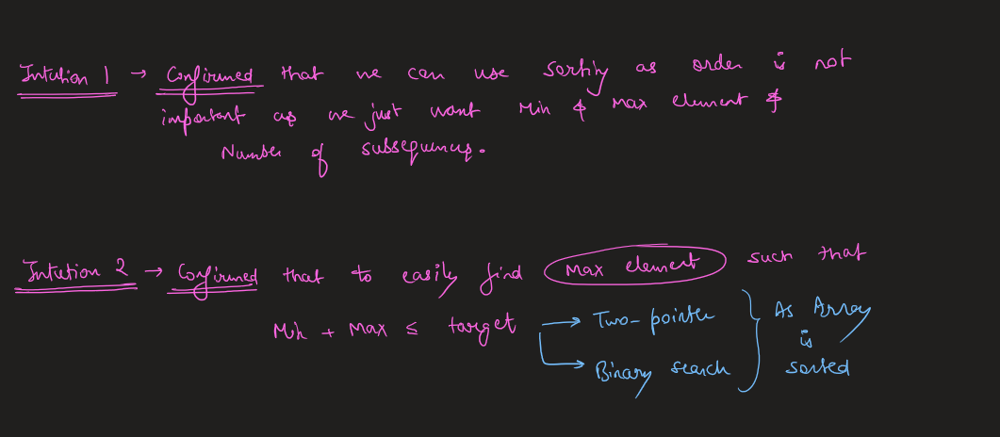 Intution 1 → Confirmed that we can use sorting as order is not
important as we just want Min & Max element &
Number of subsequences.
Intution 2 → Confirmed that to easily find Max element such that
Min + Max ≤ target → Two-pointer } As Array
is
→ Binary search sorted